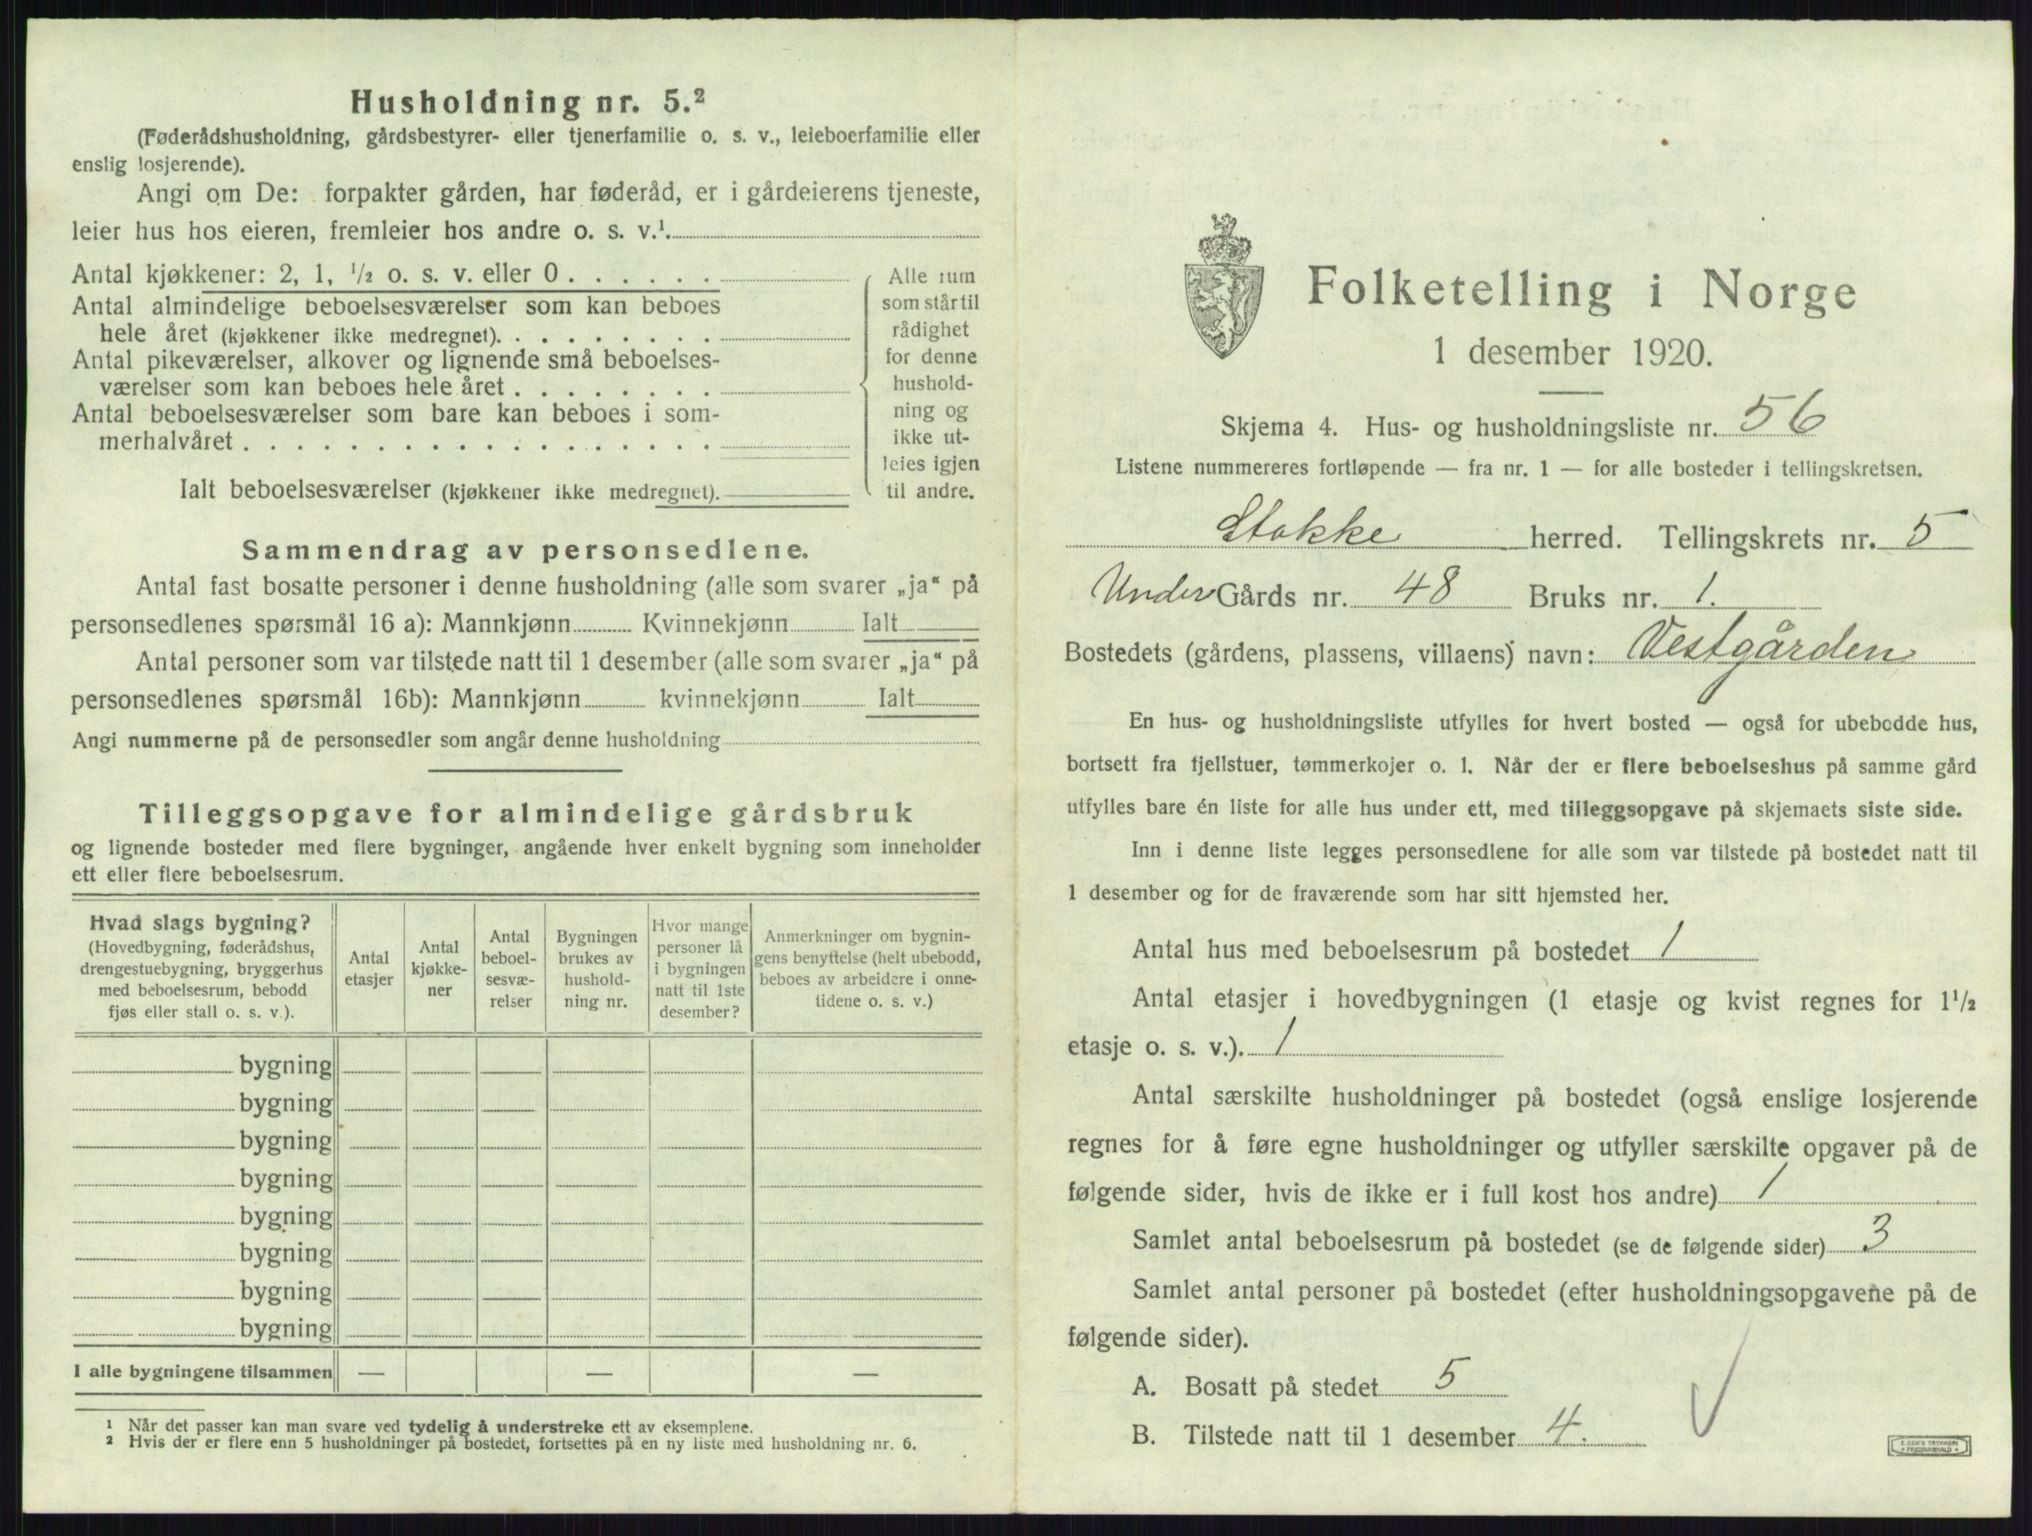 Husholdning nr. 5.²
(Føderådshusholdning, gårdsbestyrer- eller tjenerfamilie o. s. v., leieboerfamilie eller
enslig losjerende).
Angi om De: forpakter gården, har føderåd, er i gårdeierens tjeneste,
leier hus hos eieren, fremleier hos andre o. s. v.¹.
Antal kjøkkener: 2, 1, ½ o. s. v. eller 0 . . . . . .
Antal almindelige beboelsesværelser som kan beboes
hele året (kjøkkener ikke medregnet). . . . . . . . .
Antal pikeværelser, alkover og lignende små beboelses-
værelser som kan beboes hele året . . . . . . . .
Antal beboelsesværelser som bare kan beboes i som-
merhalvåret . . . . . . . . . . . . . . . . . .
Ialt beboelsesværelser (kjøkkener ikke medregnet).
Alle rum
som står til
rådighet
for denne
hushold-
ning og
ikke ut-
leies igjen
til andre.
Sammendrag av personsedlene.
Antal fast bosatte personer i denne husholdning (alle som svarer „ja“ på
personsedlenes spørsmål 16 a): Mannkjønn Kvinnekjønn Ialt
Antal personer som var tilstede natt til 1 desember (alle som svarer „ja“ på
personsedlenes spørsmål 16b): Mannkjønn kvinnekjønn Ialt
Angi nummerne på de personsedler som angår denne husholdning
Tilleggsopgave for almindelige gårdsbruk
og lignende bosteder med flere bygninger, angående hver enkelt bygning som inneholder
ett eller flere beboelsesrum.
Hvad slags bygning?
(Hovedbygning, føderådshus,
drengestuebygning, bryggerhus
med beboelsesrum, bebodd
fjøs eller stall o. s. v.).
Antal
etasjer
Antal
kjøkke-
ner
Antal
beboel-
sesvæ-
relser
Bygningen
brukes av
hushold-
ning nr.
Hvor mange
personer lå
i bygningen
natt til 1ste
desember?
Anmerkninger om bygnin-
gens benyttelse (helt ubebodd,
beboes av arbeidere i onne-
tidene o. s. v.)
bygning
bygning
bygning
bygning
bygning
bygning
bygning
bygning
I alle bygningene tilsammen — — —
¹ Når det passer kan man svare ved tydelig å understreke ett av eksemplene.
² Hvis der er flere enn 5 husholdninger på bostedet, fortsettes på en ny liste med husholdning nr. 6.
Folketelling i Norge
1 desember 1920.
Skjema 4. Hus- og husholdningsliste nr. 56
Listene nummereres fortløpende — fra nr. 1 — for alle bosteder i tellingskretsen.
Stokke herred. Tellingskrets nr. 5
Under Gårds nr. 48 Bruks nr. 1.
Bostedets (gårdens, plassens, villaens) navn: Vestgården
En hus- og husholdningsliste utfylles for hvert bosted — også for ubebodde hus,
bortsett fra fjellstuer, tømmerkojer o. l. Når der er flere beboelseshus på samme gård
utfylles bare én liste for alle hus under ett, med tilleggsopgave på skjemaets siste side.
Inn i denne liste legges personsedlene for alle som var tilstede på bostedet natt til
1 desember og for de fraværende som har sitt hjemsted her.
Antal hus med beboelsesrum på bostedet 1
Antal etasjer i hovedbygningen (1 etasje og kvist regnes for 1½
etasje o. s. v.). 1
Antal særskilte husholdninger på bostedet (også enslige losjerende
regnes for å føre egne husholdninger og utfyller særskilte opgaver på de
følgende sider, hvis de ikke er i full kost hos andre) 1
Samlet antal beboelsesrum på bostedet (se de følgende sider) 3
Samlet antal personer på bostedet (efter husholdningsopgavene på de
følgende sider).
A. Bosatt på stedet 5
B. Tilstede natt til 1 desember 4.